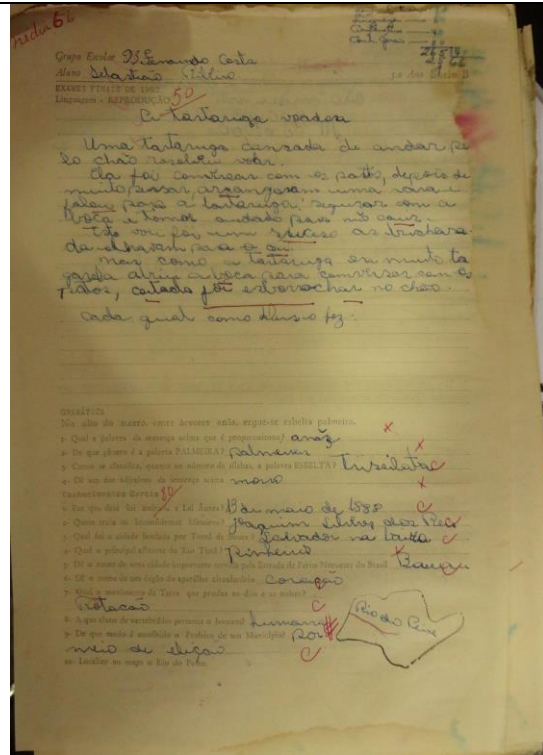 media 66
Grupo Escolar Dr Fernando Costa
Aluno Sebastião
EXAMES FINAIS DE 1962
Linguagem - REPRODUÇÃO 50
A tartaruga voadora
Uma tartaruga canzada de andar pe
lo chão rezolveu voar.
Ela foi converçar com os patos, depois de
muito pensar, argangaram uma vara e
falou para a tartaruga: segurar com a
boca e tomar cuidado para não cair.
Isto vou foi um suciso as
da olhavam para o ceu.
Mas como a tartaruga era muito ta
garela abriu a boca para conversar com os
patos, coitada foi esborrachar no chão.
Cada qual como Deus o fez.
GRAMÁTICA
No alto do morro, entre árvores anãs, ergue-se esbelta palmeira.
1- Qual a palavra da sentença acima que é proparoxítona? anãz
2- De que gênero é a palavra PALMEIRA? palmeira
3- Como se classifica, quanto ao número de sílabas, a palavra ESBELTA? Trissilaba
4- Dê um dos adjetivos da sentença acima morro
Conhecimentos Gerais 80
1- Em que data foi assinada a Lei Áurea? 13 de maio de 1888
2- Quem traiu os Inconfidentes Mineiros? Joaquim Silverio dos Reis
3- Qual foi a cidade fundada por Tomé de Sousa? Salvador na Bahia
4- Qual o principal afluente do São Tietê? Pinheiro
5- Dê o nome de uma cidade importante servida pela Estrada de Ferro Noroeste do Brasil Bauru
6- Dê o nome de um órgão do aparelho circulatório Coração
7- Qual o movimento da Terra que produz os dias e as noites?
Rotacão
8- A que classe de vertebrados pertence o homem? humano
9- De que modo é escolhido o Prefeito de um Município? Por
meio de eleição
10- Localize no mapa o Rio do Peixe.
Rio do Peixe